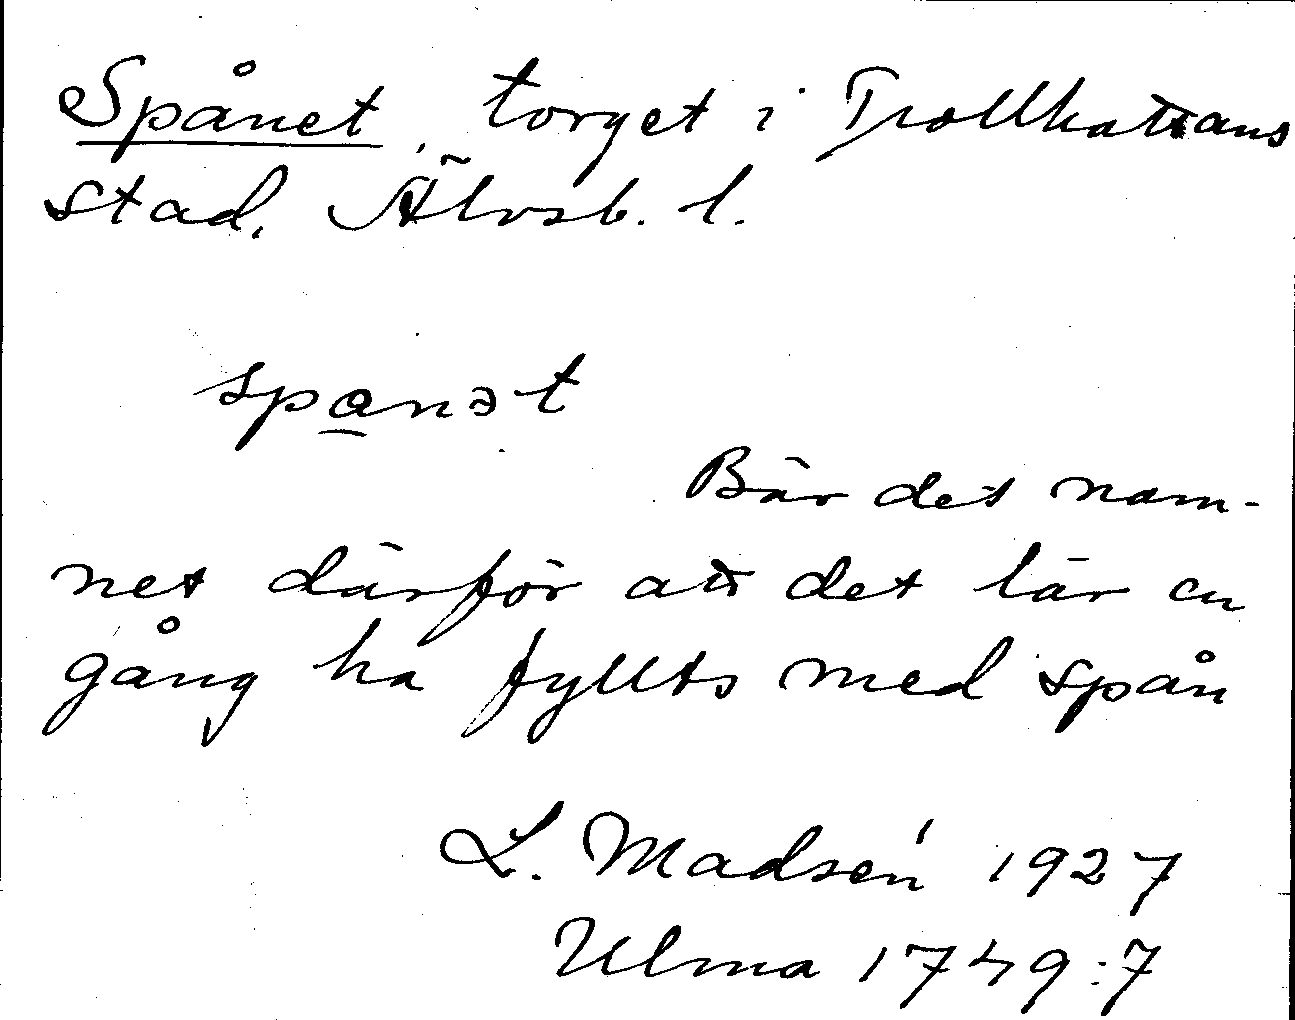 Spånet, torget i Trollhattans
stad, Älvsb. l.
spa̲nət
Bär det nam-
net därför att det lär en
gång ha fyllts med spån
L. Madsén 1927
Ulma 1749:7